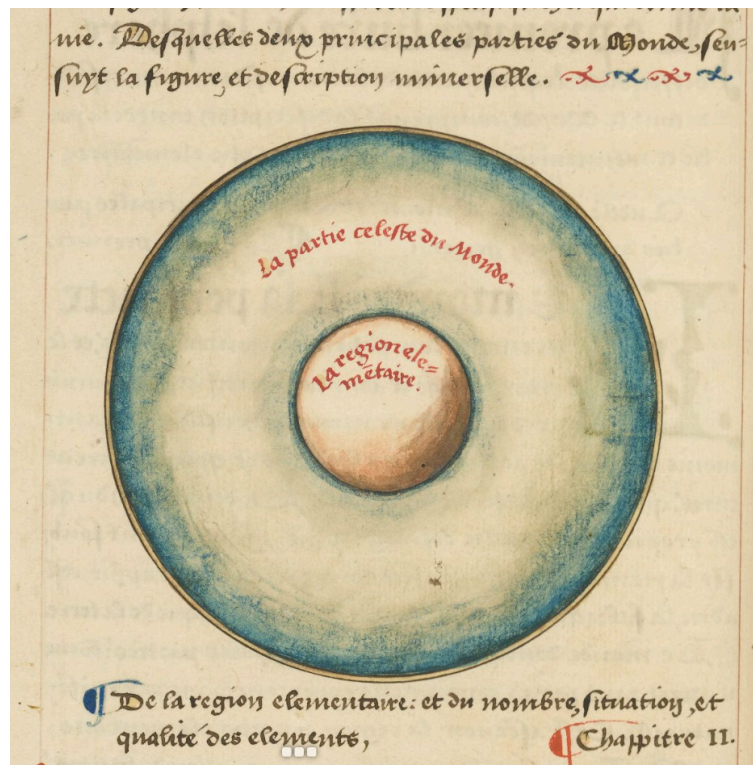 nie. Desquelles deux principales parties du Monde, sen-
suyt la figure, et description universelle.
La partie celeste du Monde.
La region ele-
mẽtaire.
De la region elementaire: et du nombre, situation, et
qualité des elements,
Chappitre II.